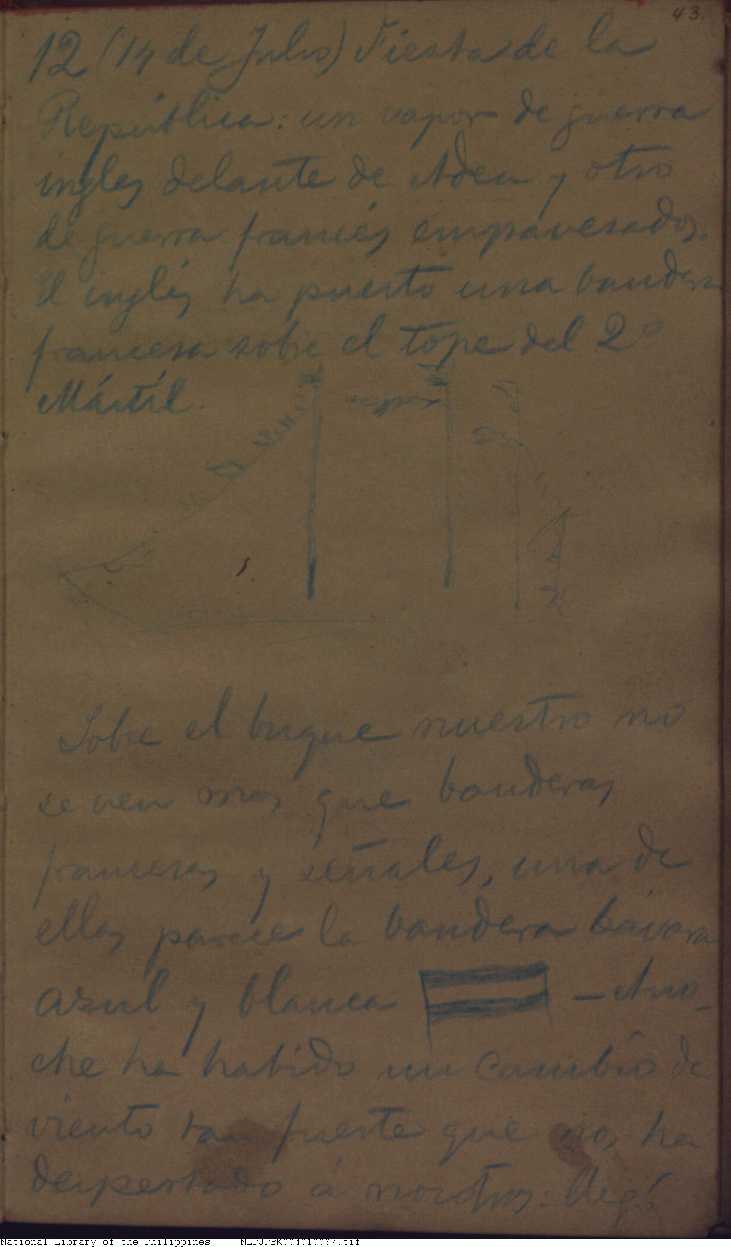 43.
12 (14 de Julio) Fiesta de la
República: un vapor de guerra
ingles delante de Aden y otro
de guerra francés empavesados.
El inglés ha puesto una bandera
francesa sobre el tope del 2º
Mástil.
Sobre el buque nuestro no
se ven mas que banderas
francesas y señales, una de
ellas parece la bandera bávara
azul y blanca — Ano-
che ha habido un cambio de
viento tan fuerte que nos ha
despertado á nosotros:
National Library of the Philippines